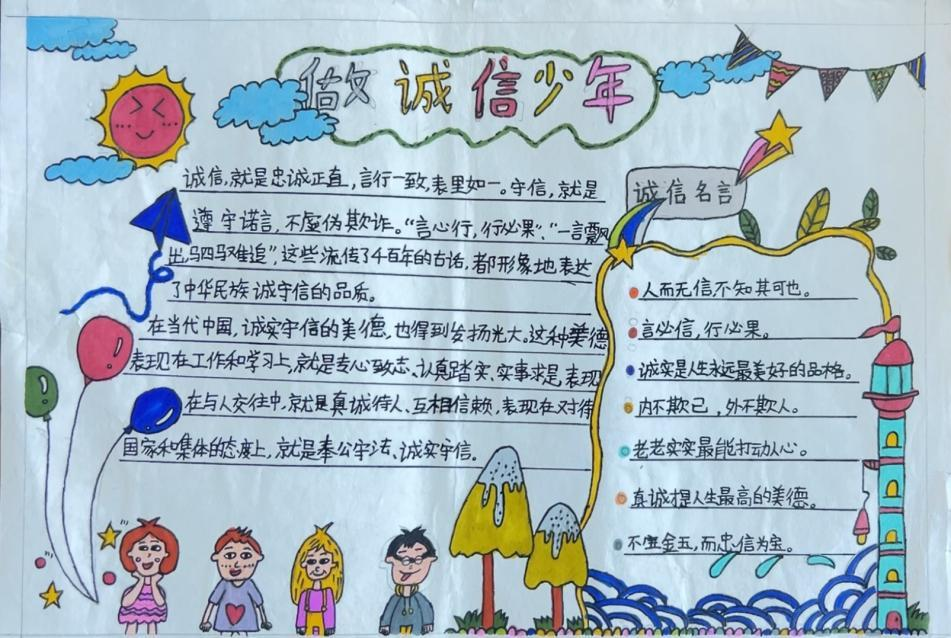 做诚信少年
诚信,就是忠诚正直,言行一致,表里如一。守信,就是
遵守诺言,不虚伪欺诈。“言心行,行必果”、“一言飘
出,驷马难追”,这些流传了4百年的古话,都形象地表达
了中华民族诚守信的品质。
在当代中国,诚实守信的美德,也得到发扬光大。这种美德
表现在工作和学习上,就是专心致志、认真踏实、实事求是,表现
在与人交往中,就是真诚待人、互相信赖,表现在对待
国家和集体的态度上,就是奉公守法、诚实守信。
诚信名言
人而无信,不知其可也。
言必信,行必果。
诚实是人生永远最美好的品格。
内不欺己,外不欺人。
老老实实最能打动人心。
真诚是人生最高的美德。
不宝金玉,而忠信为宝。